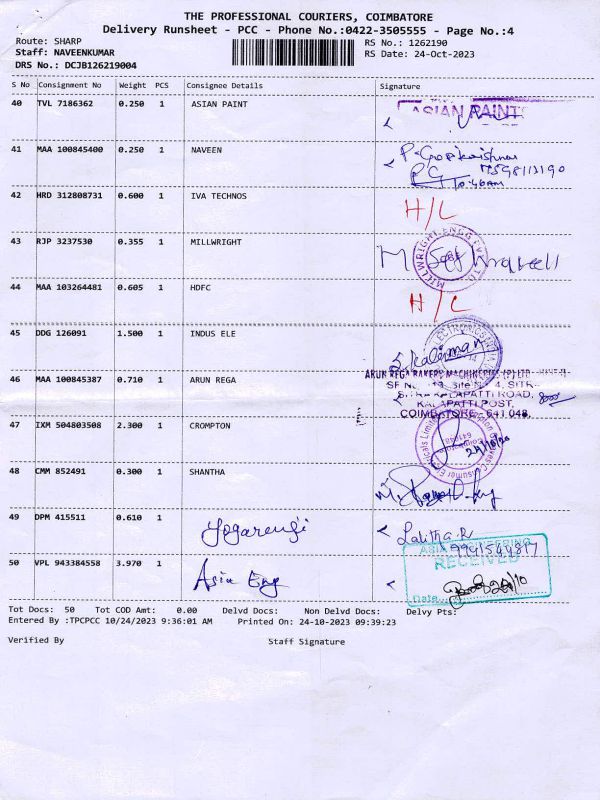 THE PROFESSIONAL COURIERS, COIMBATORE
Delivery Runsheet - PCC - Phone No.:0422-3505555 - Page No.:4
Route: SHARP
RS No.: 1262190
Staff: NAVEENKUMAR
RS Date: 24-Oct-2023
DRS No.: DCJB126219004
S No Consignment No Weight PCS Consignee Details Signature
40 TVL 7186362 0.250 1 ASIAN PAINT ASIAN PAINTS
41 MAA 100845400 0.250 1 NAVEEN
10.40AM
42 HRD 312808731 0.600 1 IVA TECHNOS H/L
43 RJP 3237530 0.355 1 MILLWRIGHT MILLWRIGHT ENGG PVT LTD
44 MAA 103264481 0.605 1 HDFC H/L
45 DDG 126091 1.500 1 INDUS ELE
46 MAA 100845387 0.710 1 ARUN REGA ARUN REGA BAKERY MACHINERIES (P) LTD
KALAPATTI POST,
COIMBATORE - 641 048.
47 IXM 504803508 2.300 1 CROMPTON
48 CMM 852491 0.300 1 SHANTHA
49 DPM 415511 0.610 1 Lalitha.R
50 VPL 943384558 3.970 1 Asia Eng ASIA ENGINEERING
RECEIVED
Date
Tot Docs: 50 Tot COD Amt: 0.00 Delvd Docs: Non Delvd Docs: Delvy Pts:
Entered By :TPCPCC 10/24/2023 9:36:01 AM Printed On: 24-10-2023 09:39:23
Verified By Staff Signature